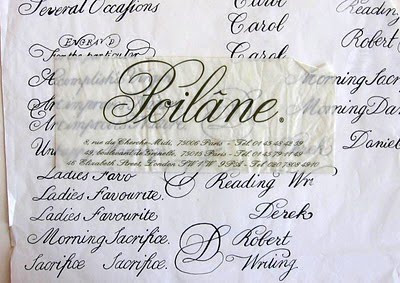 Several Occasions Carol Reading
Carol
ENGRAV'D Carol Robert
from the particular
Poilâne.
Morning Sacri
Morning Da
8, rue du Cherche-Midi, 75006 Paris - Tél 01 45 48 42 59
Daniel
49, boulevard de Grenelle, 75015 Paris - Tél 01 45 79 11 49
46 Elizabeth Street, London SW1W 9PA - Tel 020 7808 4910
Ladies Favo Reading Wr
Ladies Favourite.
Ladies Favourite Derek
Morning Sacrifice. D Robert
Sacrifice Sacrifice Writing